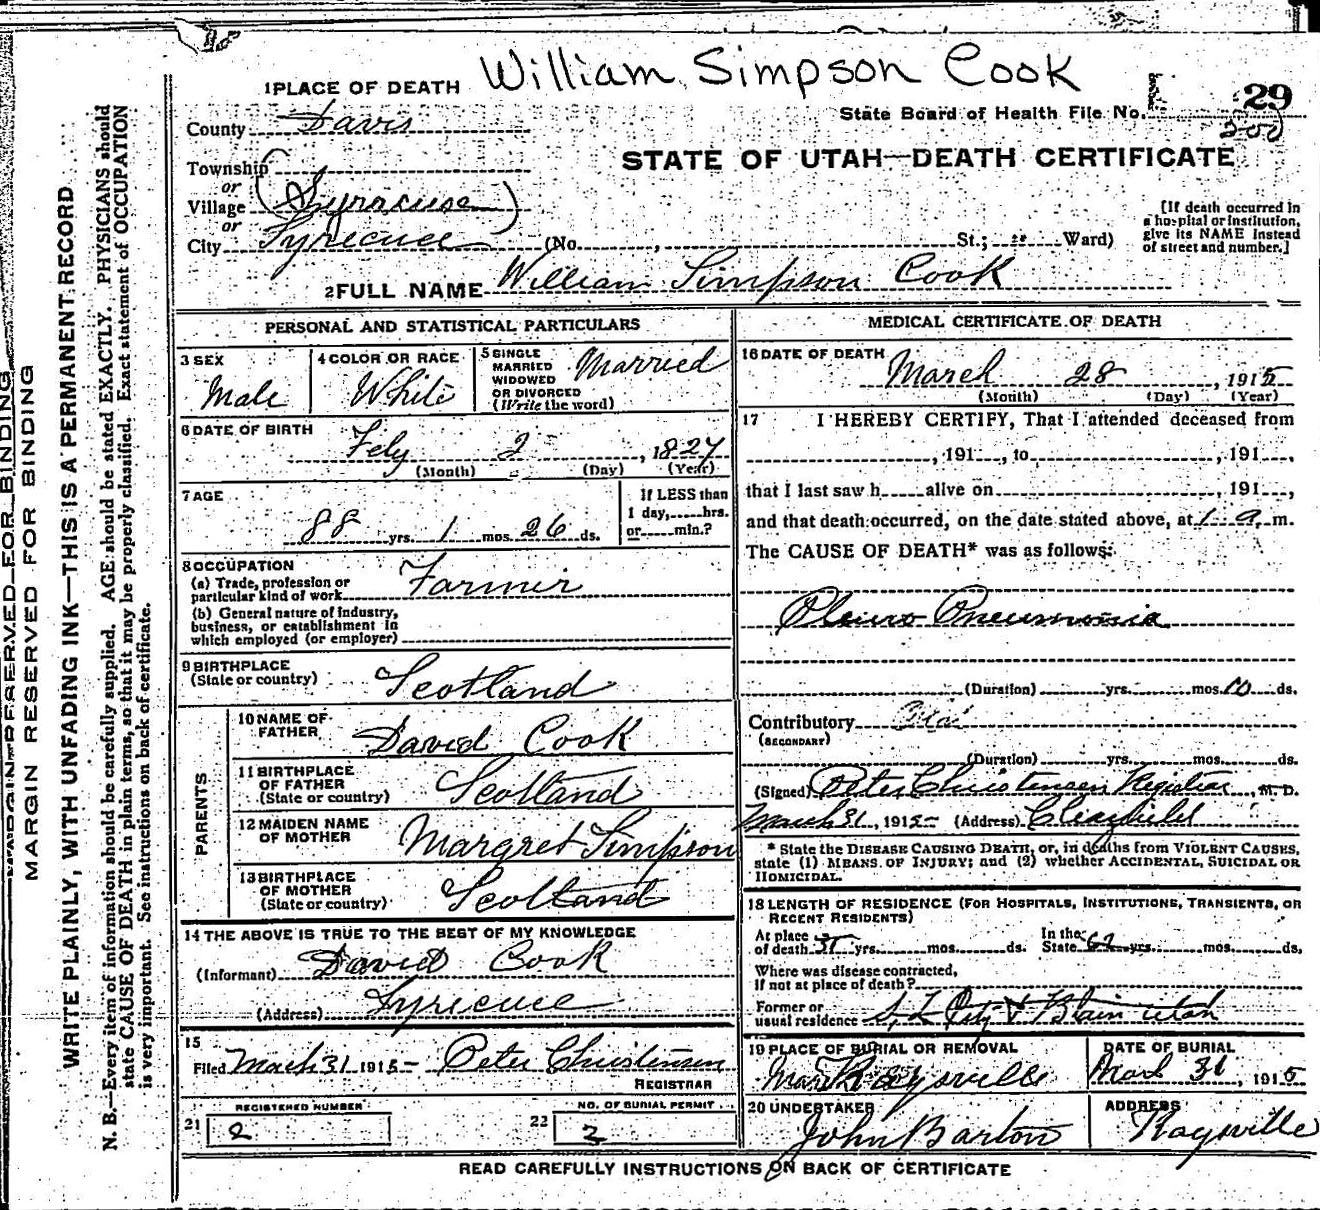 William Simpson Cook
1 PLACE OF DEATH
29
State Board of Health File No.
200
County Davis
STATE OF UTAH—DEATH CERTIFICATE
Township
or
Village (Syracuse)
or
City Syrecuse (No. , St.; Ward)
[If death occurred in
a hospital or institution,
give its NAME instead
of street and number.]
2 FULL NAME William Simpson Cook
PERSONAL AND STATISTICAL PARTICULARS
3 SEX
Male
4 COLOR OR RACE
White
5 SINGLE
MARRIED
WIDOWED
OR DIVORCED
(Write the word)
Married
6 DATE OF BIRTH
Feby 2, 1827
(Month) (Day) (Year)
7 AGE
88 yrs. 1 mos. 26 ds.
If LESS than
1 day, hrs.
or min.?
8 OCCUPATION
(a) Trade, profession or
particular kind of work Farmir
(b) General nature of industry,
business, or establishment in
which employed (or employer)
9 BIRTHPLACE
(State or country) Scotland
PARENTS
10 NAME OF
FATHER David Cook
11 BIRTHPLACE
OF FATHER
(State or country) Scotland
12 MAIDEN NAME
OF MOTHER Margret Simpson
13 BIRTHPLACE
OF MOTHER
(State or country) Scotland
14 THE ABOVE IS TRUE TO THE BEST OF MY KNOWLEDGE
(Informant) David Cook
(Address) Syrecuse
15
Filed March 31 1915 Peter Christensen
REGISTRAR
REGISTERED NUMBER
21 2
NO. OF BURIAL PERMIT
22 2
MEDICAL CERTIFICATE OF DEATH
16 DATE OF DEATH
March 28, 1915
(Month) (Day) (Year)
17 I HEREBY CERTIFY, That I attended deceased from
, 191 , to , 191 ,
that I last saw h alive on , 191 ,
and that death occurred, on the date stated above, at 1 a. m.
The CAUSE OF DEATH* was as follows:
Pleuro Pneumonia
(Duration) yrs. mos. 10 ds.
Contributory
(SECONDARY)
(Duration) yrs. mos. ds.
(Signed) Peter Christensen Registrar, M. D.
March 31, 1915 (Address) Clearfield
* State the DISEASE CAUSING DEATH, or, in deaths from VIOLENT CAUSES,
state (1) MEANS OF INJURY; and (2) whether ACCIDENTAL, SUICIDAL OR
HOMICIDAL.
18 LENGTH OF RESIDENCE (FOR HOSPITALS, INSTITUTIONS, TRANSIENTS, OR
RECENT RESIDENTS)
At place
of death yrs. mos. ds.
In the
State 62 yrs. mos. ds.
Where was disease contracted,
If not at place of death?
Former or
usual residence S. L City & Utah
19 PLACE OF BURIAL OR REMOVAL
Kaysville
DATE OF BURIAL
March 31, 1915
20 UNDERTAKER
John Barton
ADDRESS
Kaysville
READ CAREFULLY INSTRUCTIONS ON BACK OF CERTIFICATE
MARGIN RESERVED FOR BINDING
MARGIN RESERVED FOR BINDING
WRITE PLAINLY, WITH UNFADING INK—THIS IS A PERMANENT RECORD
N. B.—Every item of information should be carefully supplied. AGE should be stated EXACTLY. PHYSICIANS should
state CAUSE OF DEATH in plain terms, so that it may be properly classified. Exact statement of OCCUPATION
is very important. See instructions on back of certificate.